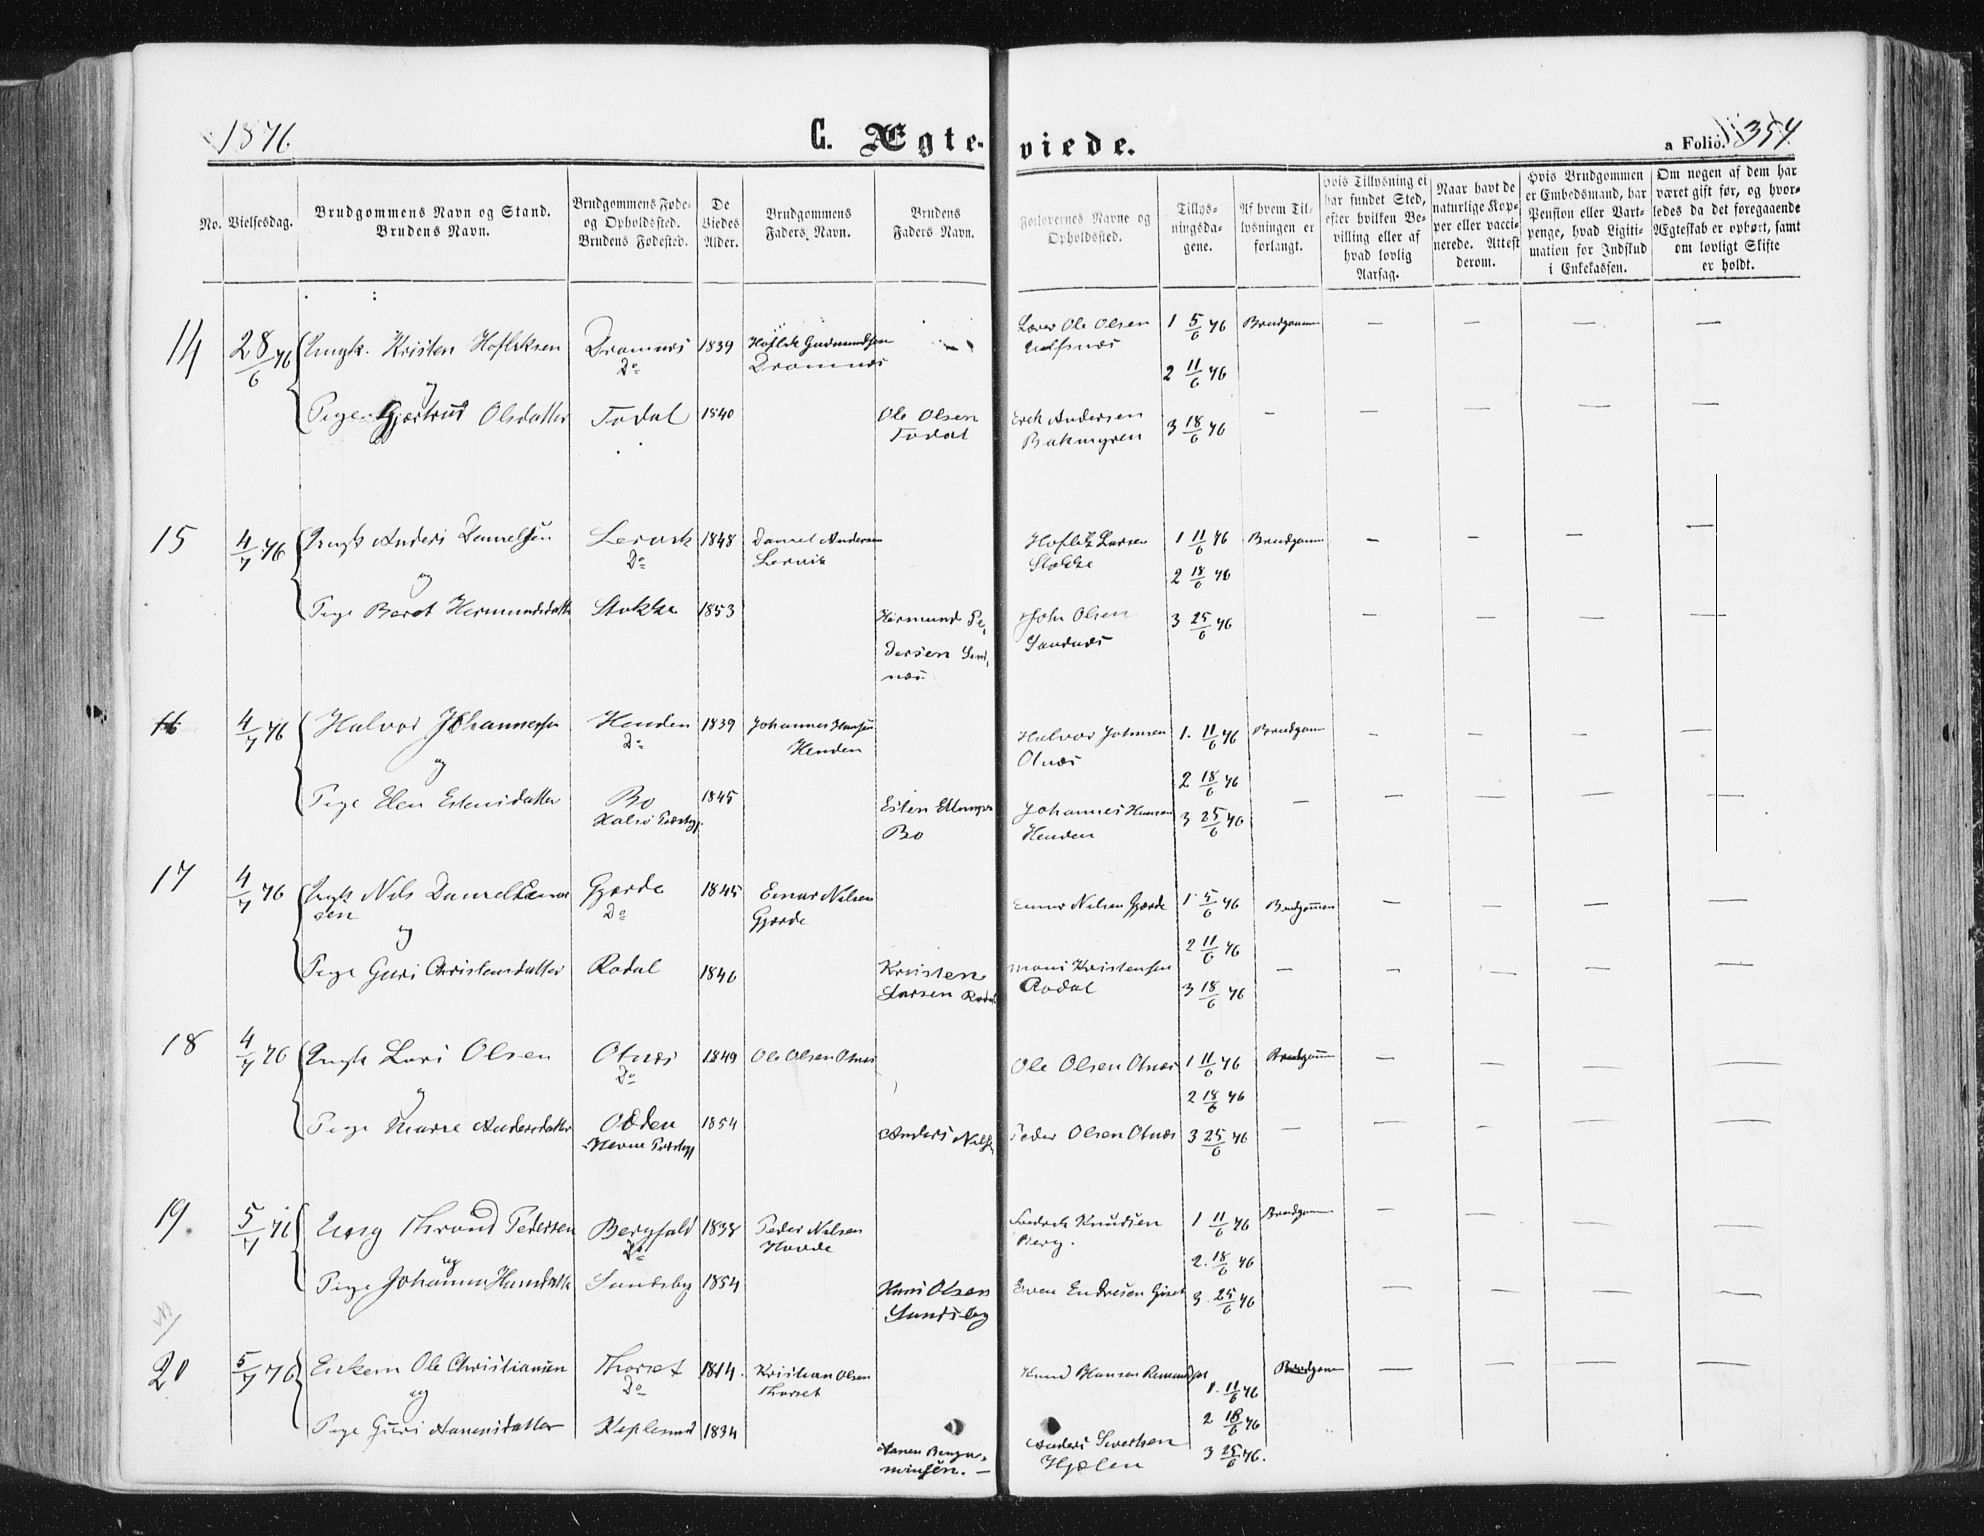 1876
C. Ægte-viede.
a Folio. 354
No.
Vielsesdag.
Brudgommens Navn og Stand.
Brudens Navn.
Brudgommens Føde-
og Opholdssted.
Brudens Fødested.
De
Viedes
Alder.
Brudgommens
Faders Navn.
Brudens
Faders Navn.
Forlovernes Navne og
Opholdssted.
Tillys-
ningsda-
gene.
Af hvem Til-
lysningen er
forlangt.
Hvis Tillysning ei
har fundet Sted,
efter hvilken Be-
villing eller af
hvad lovlig
Aarsag.
Naar havt de
naturlige Kop-
per eller vacci-
nerede. Attest
derom.
Hvis Brudgommen
er Embedsmand, har
Pension eller Vart-
penge, hvad Ligiti-
mation for Indskud
i Enkekassen.
Om nogen af dem har
været gift før, og hvor-
ledes da det foregaaende
Ægteskab er ophørt, samt
om lovligt Skifte
er holdt.
14 28/6 76 Ungk. Kristen Hofleksen Dromnes 1839 Brudgommen
Do Dromnes
Lærer Ole Olsen
1 5/6 76
2 11/6 76
og
Pige Gjertrud Olsdatter Todal 1840 Ole Olsen
Todal
Erik Andersen
Bakmyren
3 18/6 76
15 4/7 76 Ungk Anders Danielsen Lervik 1848 Daniel Andersen
Do Lervik
Hoflek Larsen
Stokke
1 11/6 76 Brudgommen
2 18/6 76
og
Pige Beret Hermundsdatter Stokke 1853 Hermund Pe-
dersen Sand-
næs.
John Olsen
Sandnæs
3 25/6 76
16 4/7 76 Halvor Johannessen Henden 1839 Johannes Hansen
Do Henden
Halvor Johnsen
Otnæs
1. 11/6 76 Brudgom
2 18/6 76
og
Pige Elen Estensdatter Bo 1845
Halsø Præstegj.
Esten
Bo
Johannes Hansen
Henden
3 25/6 76
17 4/7 76 Ungk Nils Daniel Einar-
sen
Gjærde 1845 Einar Nilsen
Do Gjærde
Einar Nilsen Gjærde 1 5/6 76 Brudgommen
2 11/6 76
og
Pige Guri Christensdatter Rodal 1846 Kristen
Larsen Rodal
Mons Kristensen
Rodal
3 18/6 76
18 4/7 76 Ungk Lars Olsen Otnæs 1849 Ole Olsen Otnæs
Do
Ole Olsen Otnæs 1 11/6 76 Brudgommen
2 18/6 76
og
Pige Marre Andersdatter Odden 1854
Hevne Præstegj
Anders Nilsen
Peder Olsen Otnæs 3 25/6 76
19. 5/7 76 Thrond Pedersen 1838 Peder Nilsen
Do Hovde
Fredrik Knudsen
Berg.
1 11/6 76 Brudgommen
2. 18/6 76
og
Pige Johanna Hansdatter Sundsby 1854 Hans Olsen
Sundsby
Even Endresen Giset 3. 25/6 76
NB
20 5/7 76 Enkem Ole Christiansen Thorset 1814. Kristian Olsen
Do Thorset
Knud Hansen
1. 11/6 76 Brudgommen
2 18/6 76
og
Pige Guri Aanensdatter 1834
Aanen Benja-
minsen.
Anders Sivertsen
Hjælen
3 25/6 76.